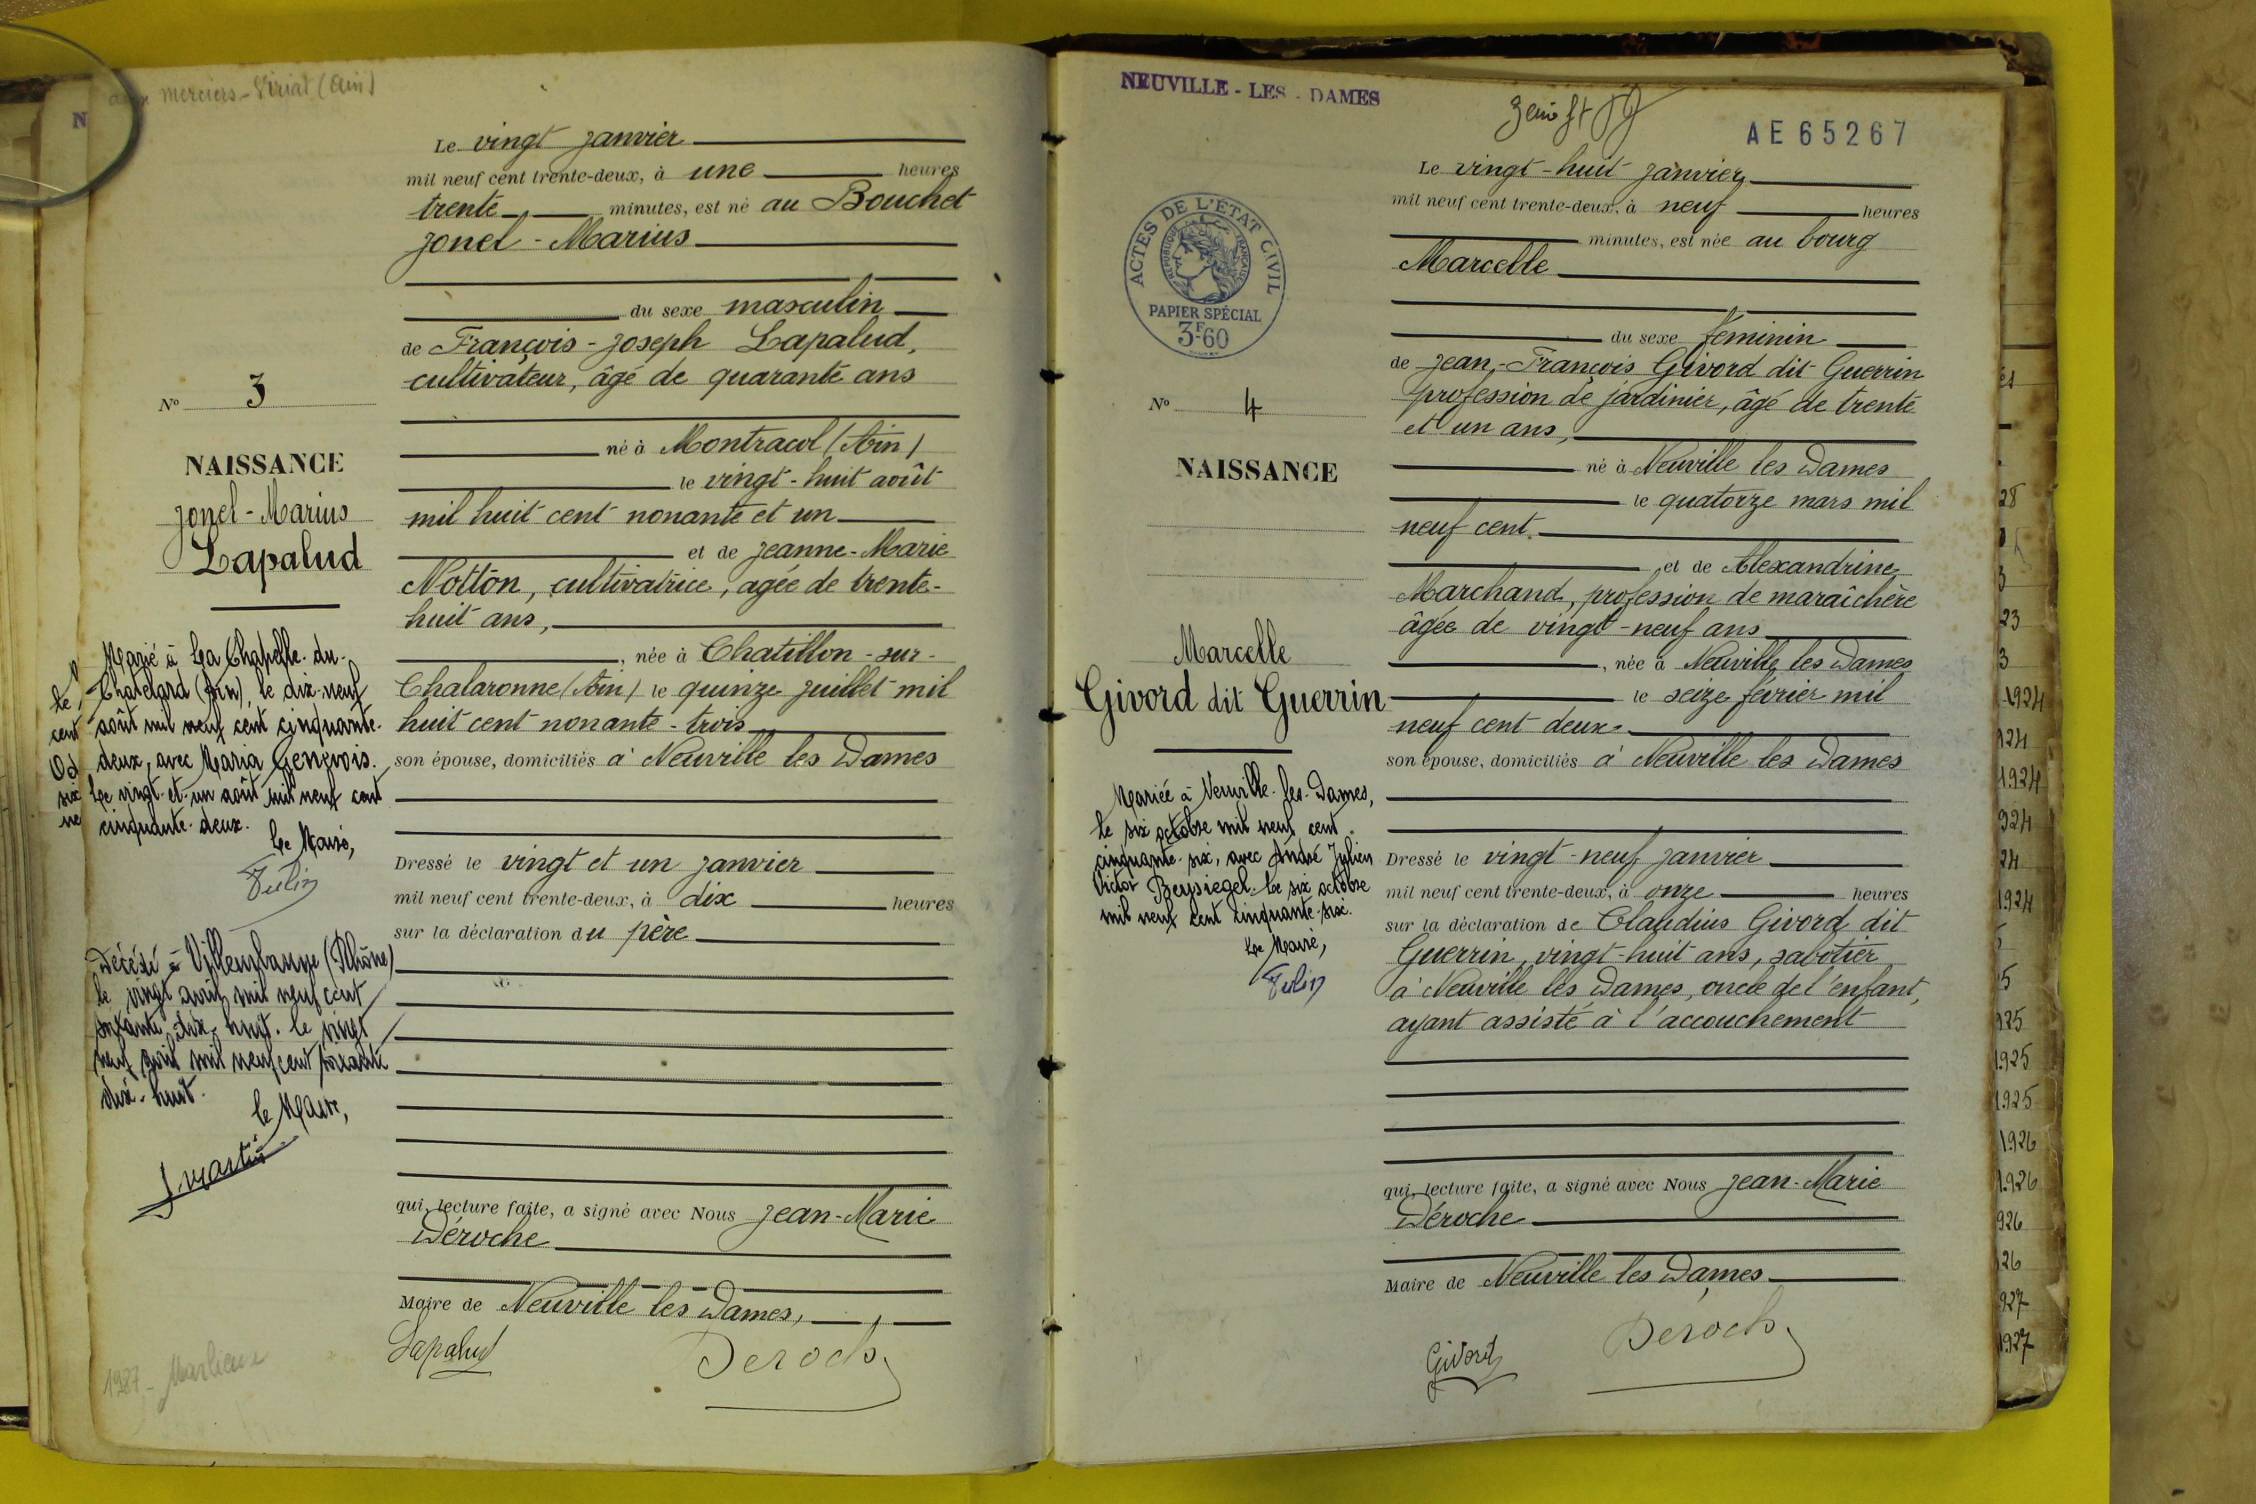 merciers - Viriat (Ain)
N
Le vingt janvier
mil neuf cent trente-deux, à une heures
trente minutes, est né au Bouchet
Jonel - Marius
du sexe masculin
de François - Joseph Lapalud,
cultivateur, âgé de quarante ans
né à Montracol (Ain)
le vingt - huit août
mil huit cent nonante et un
et de Jeanne - Marie
Notton, cultivatrice, agée de trente-
huit ans,
, née à Chatillon - sur -
Chalaronne (Ain) le quinze juillet mil
huit cent nonante - trois
son épouse, domiciliés à Neuville les Dames
Dressé le vingt et un janvier
mil neuf cent trente-deux, à dix heures
sur la déclaration du père
qui, lecture faite, a signé avec Nous Jean - Marie
Déroche
Maire de Neuville les Dames,
Lapalud
Deroche
No 3
NAISSANCE
Jonel - Marius
Lapalud
Marié à La Chapelle - du -
Chatelard (Ain), le dix-neuf
août mil neuf cent cinquante-
deux, avec Maria Genevois.
Le vingt - et - un août mil neuf cent
cinquante - deux.
Le Maire,
Tulin
Décédé à Villeurbanne (Rhône)
le vingt avril mil neuf cent
soixante - dix - huit. le vingt
neuf avril mil neuf cent soixante
dix - huit.
le Maire,
J Martin
1987 - Marlieux
Le
cent
six
ne
NEUVILLE - LES - DAMES
AE65267
ACTES DE L'ÉTAT CIVIL
RÉPUBLIQUE FRANÇAISE
PAPIER SPÉCIAL
3F60
No 4
NAISSANCE
Marcelle
Givord dit Guerrin
Mariée à Neuville - les - Dames,
le six octobre mil neuf cent
cinquante - six, avec André Julien
Victor Beysiegel. Le six octobre
mil neuf cent cinquante - six.
Le Maire,
Tulin
Le vingt - huit janvier
mil neuf cent trente-deux, à neuf heures
minutes, est née au bourg
Marcelle
du sexe féminin
de Jean - François Givord dit Guerrin
profession de jardinier, âgé de trente
et un ans,
né à Neuville les Dames
le quatorze mars mil
neuf cent.
et de Alexandrine
Marchand, profession de maraîchère
âgée de vingt - neuf ans
, née à Neuville les Dames
le seize février mil
neuf cent deux
son épouse, domiciliés à Neuville les Dames
Dressé le vingt - neuf janvier
mil neuf cent trente-deux, à onze heures
sur la déclaration de Claudius Givord dit
Guerrin, vingt - huit ans, sabotier
à Neuville les Dames, oncle de l'enfant,
ayant assisté à l'accouchement
qui, lecture faite, a signé avec Nous Jean - Marie
Déroche
Maire de Neuville les Dames
Givord
Deroche
28
3
23
3
1924
124
1924
924
24
1924
5
925
1925
1925
1926
1926
926
26
927
1927